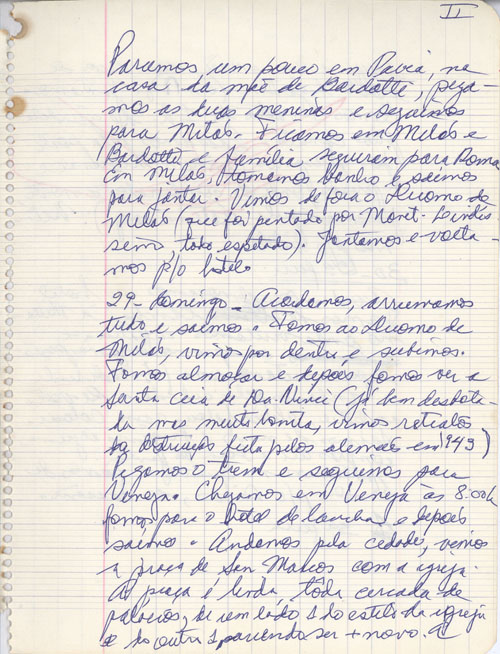 II
Paramos um pouco em Pavia, na
casa da mãe de Bardotti, pega-
mos as duas meninas e seguimos
para Milão. Ficamos em Milão e
Bardotti e família seguiram para Roma
Em Milão, tomamos banho e saimos
para jantar. Vimos de fora o Duomo de
Milão (que foi pintado por Monet. Lindís
simo, todo espetado). Jantamos e volta-
mos p/o hotel
29- domingo - Acordamos, arrumamos
tudo e saimos. Fomos ao Duomo de
Milão, vimos por dentro e subimos.
Fomos almoçar e depois fomos ver a
Santa ceia de Da Vinci (já bem desbota-
da mas muito bonita, vimos retratos
da destruição feita pelos alemães em 1943)
Pegamos o trem e seguimos para
Veneza. Chegamos em Veneza às 8:00h
fomos para o hotel de lancha e depois
saimos. Andamos pela cidade, vimos
a praça de San Marcos com a igreja.
A praça é linda, toda cercada de
palacios, de um lado 1 do estilo da igreja
e do outro 1 parecendo ser + novo. A